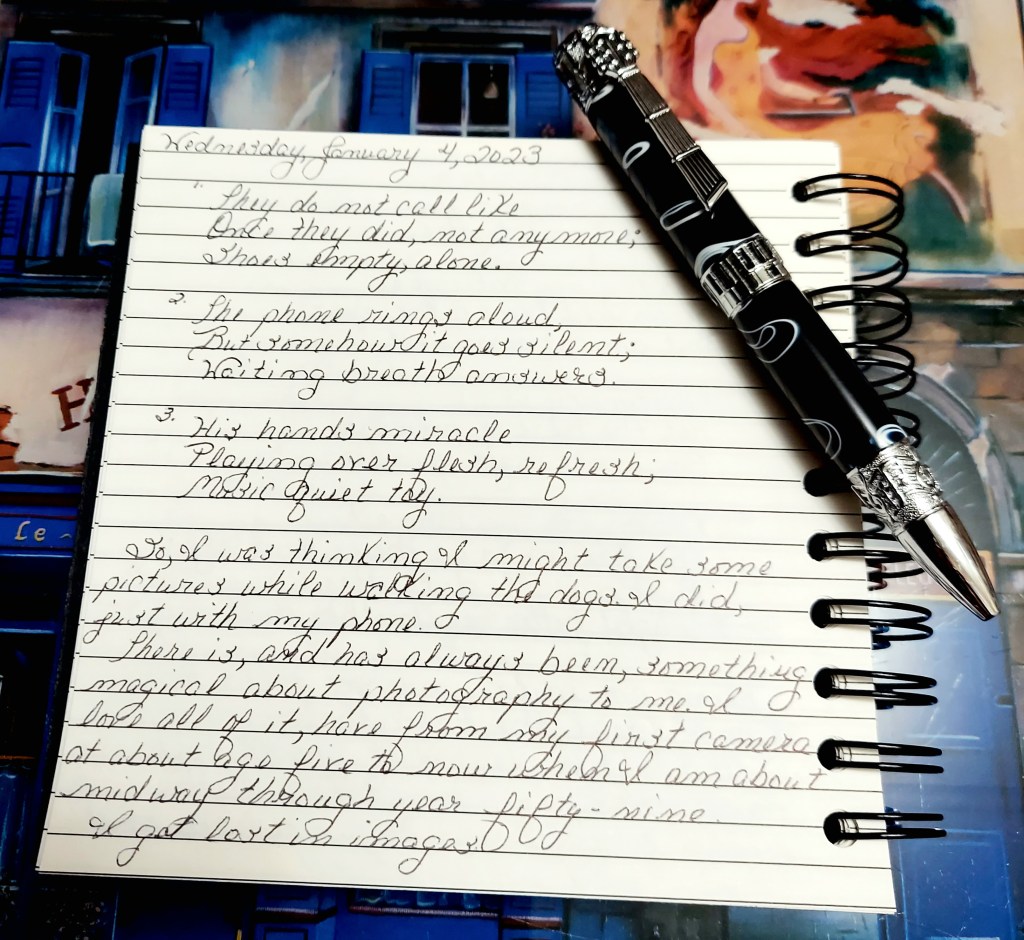 Wednesday, January 4, 2023
1. They do not call like
Once they did, not any more;
Shoes empty, alone.
2. The phone rings aloud,
But somehow it goes silent;
Waiting breath answers.
3. His hands miracle
Playing over flesh, refresh;
Music quiet toy.
So, I was thinking I might take some
pictures while walking the dogs. I did,
just with my phone.
There is, and has always been, something
magical about photography to me. I
love all of it, have from my first camera
at about age five to now when I am about
midway through year fifty-nine.
I get lost in images.
Le